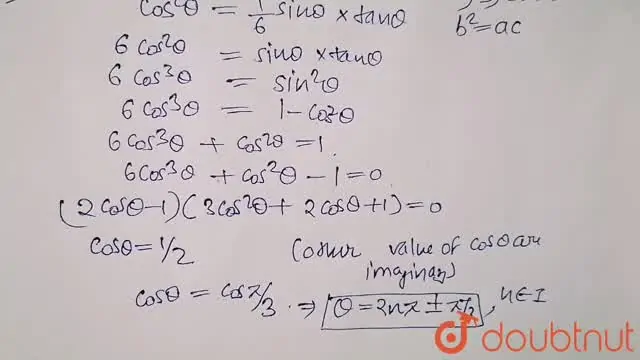 cos²θ = 1/6 sinθ × tanθ
b² = ac
6 cos²θ = sinθ × tanθ
6 cos³θ = sin²θ
6 cos³θ = 1 - cos²θ
6 cos³θ + cos²θ = 1.
6cos³θ + cos²θ - 1 = 0
(2cosθ-1)(3cos²θ + 2cosθ+1) = 0
cosθ = 1/2 (other value of cosθ are
imaginary)
cosθ = cos π/3 . ⇒ θ = 2nπ ± π/3, n∈I
doubtnut